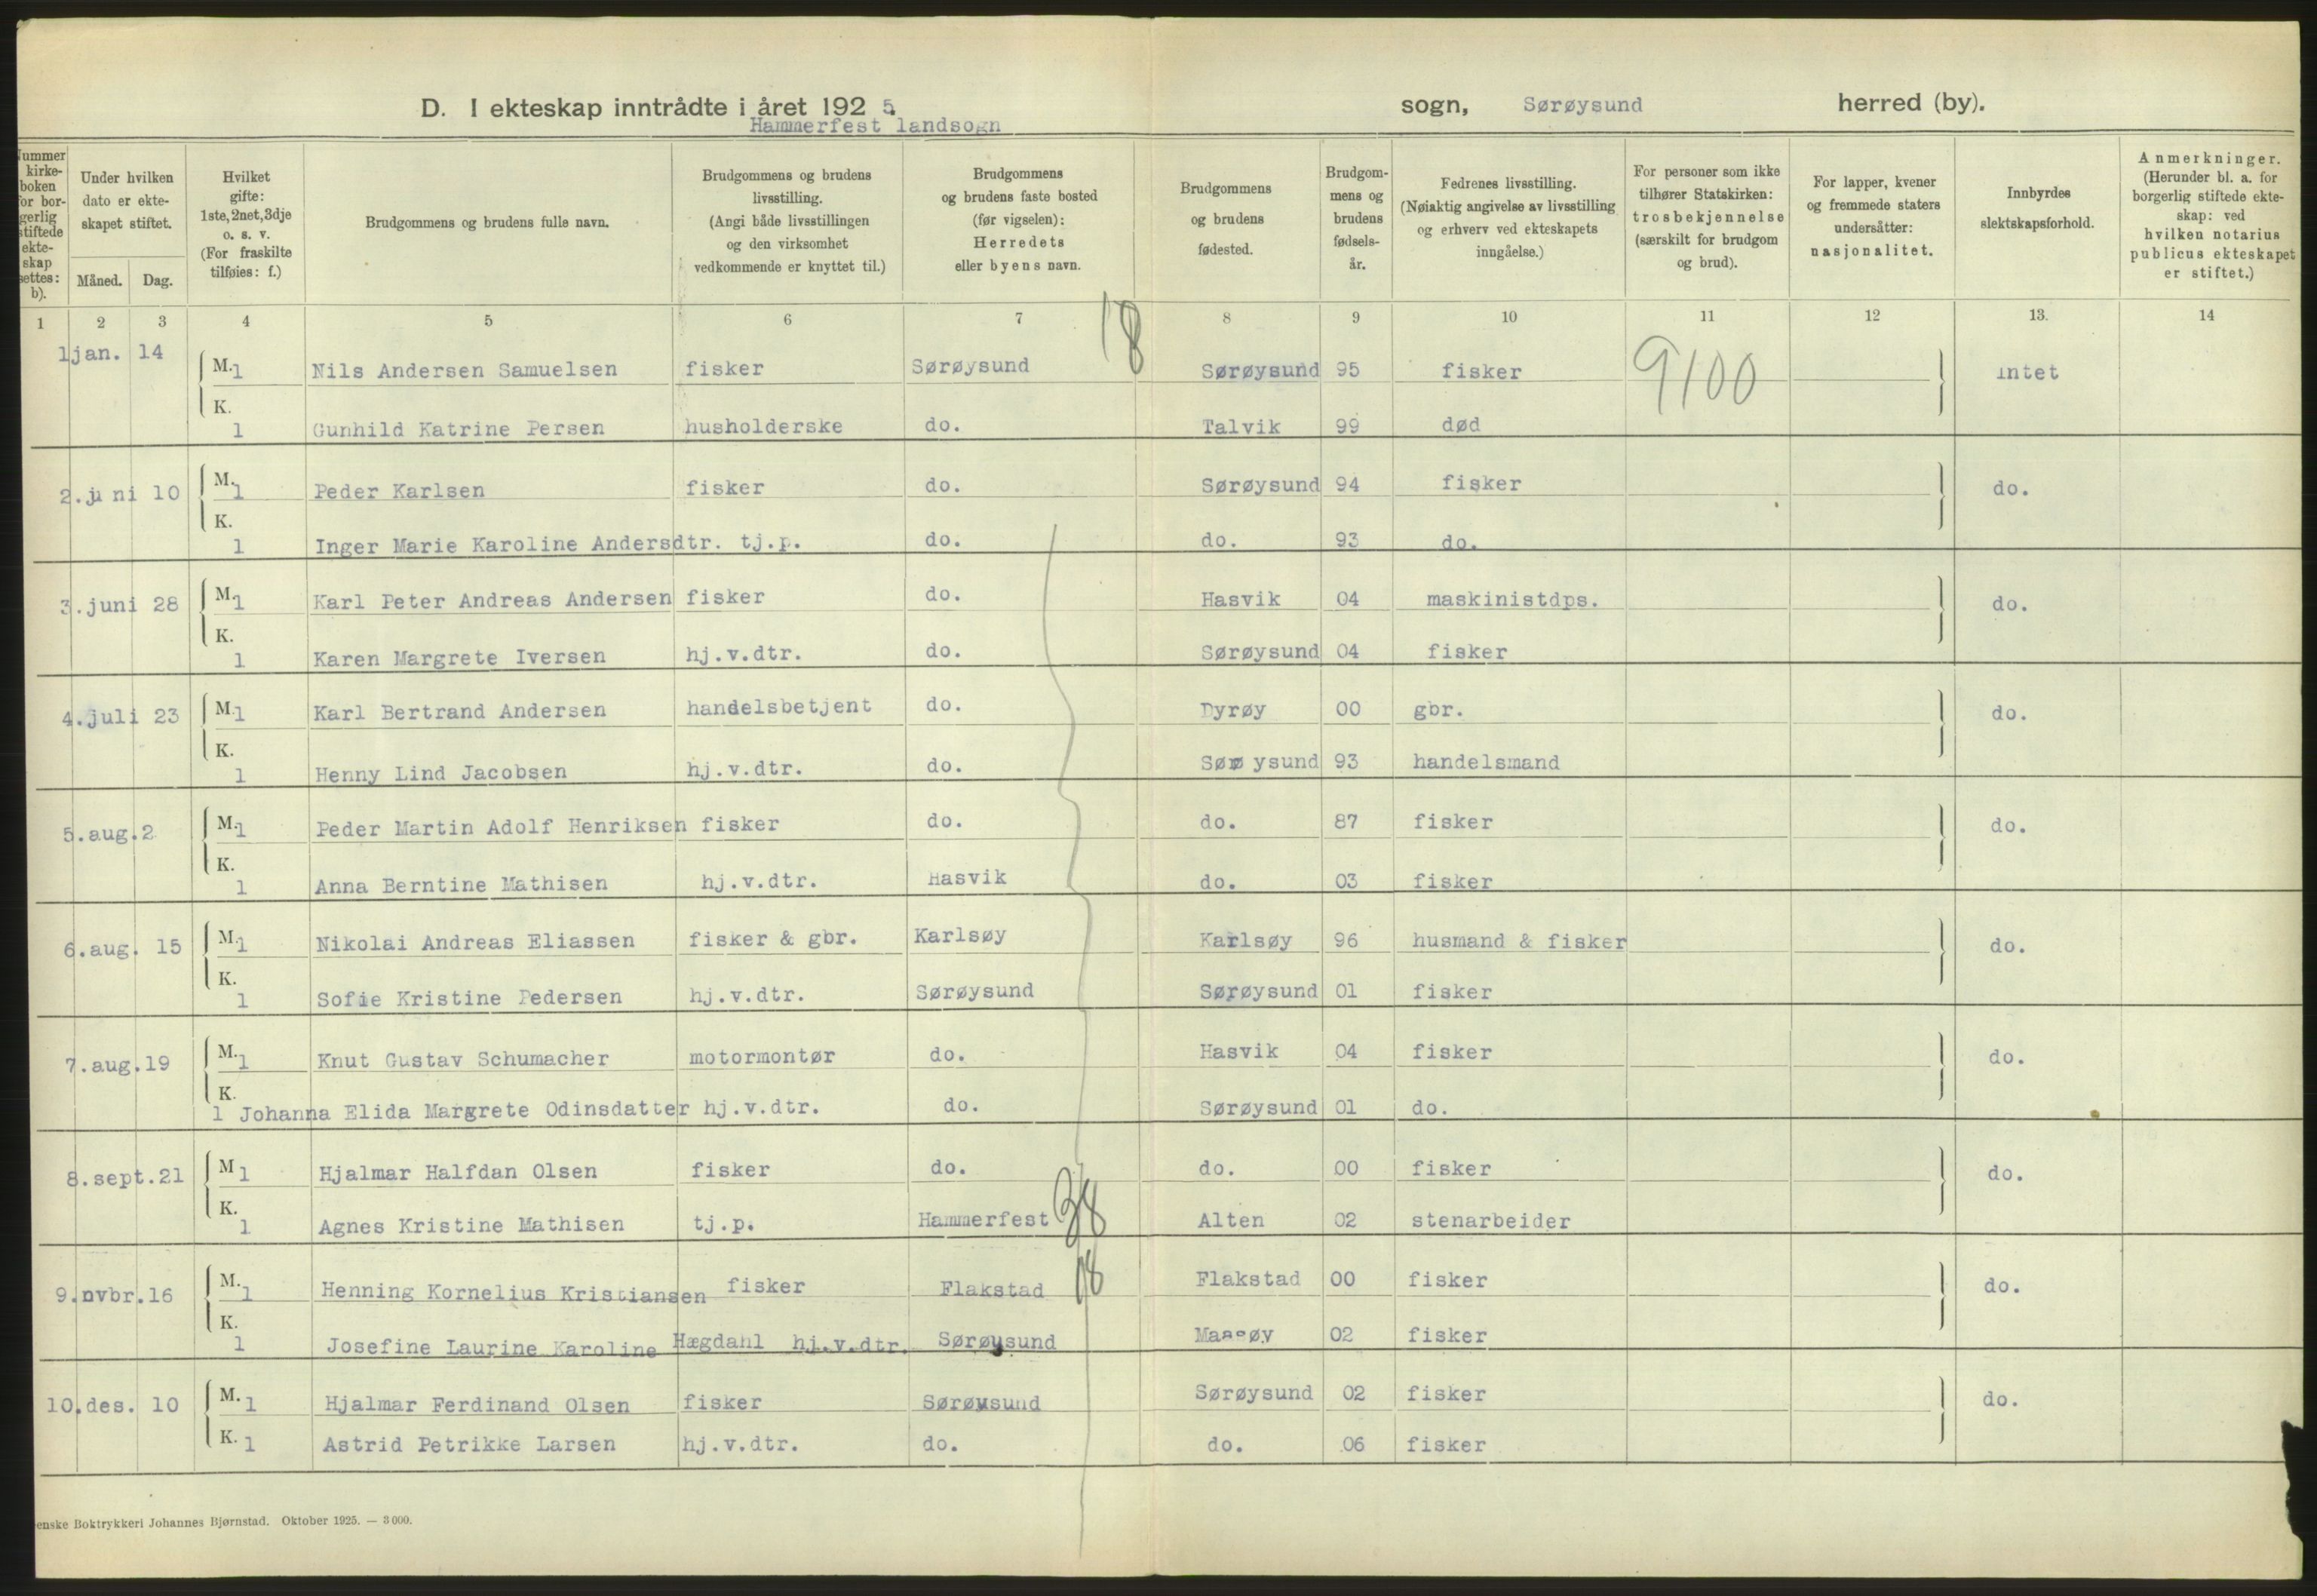 D. I ekteskap inntrådte i året 192 5. sogn, Sørøysund herred (by).
Hammerfest landsogn
Nummer i kirkeboken for borgerlig stiftede ekteskap settes: b).
Under hvilken dato er ekteskapet stiftet.
Måned. Dag.
Hvilket gifte: 1ste, 2net, 3dje o. s. v. (For fraskilte tilføies: f.)
Brudgommens og brudens fulle navn.
Brudgommens og brudens livsstilling. (Angi både livsstillingen og den virksomhet vedkommende er knyttet til.)
Brudgommens og brudens faste bosted (før vigselen): Herredets eller byens navn.
Brudgommens og brudens fødested.
Brudgommens og brudens fødselsår.
Fedrenes livsstilling. (Nøiaktig angivelse av livsstilling og erhverv ved ekteskapets inngåelse.)
For personer som ikke tilhører Statskirken: trosbekjennelse (særskilt for brudgom og brud).
For lapper, kvener og fremmede staters undersåtter: nasjonalitet.
Innbyrdes slektskapsforhold.
Anmerkninger. (Herunder bl. a. for borgerlig stiftede ekteskap: ved hvilken notarius publicus ekteskapet er stiftet.)
1 2 3 4 5 6 7 8 9 10 11 12 13. 14
18
9100
1 jan. 14 M. 1 Nils Andersen Samuelsen fisker Sørøysund Sørøysund 95 fisker intet
K. 1 Gunhild Katrine Persen husholderske do. Talvik 99 død
2. juni 10 M. 1 Peder Karlsen fisker do. Sørøysund 94 fisker do.
K. 1 Inger Marie Karoline Andersdtr. tj.p. do. do. 93 do.
3. juni 28 M. 1 Karl Peter Andreas Andersen fisker do. Hasvik 04 maskinistdps. do.
K. 1 Karen Margrete Iversen hj.v.dtr. do. Sørøysund 04 fisker
4. juli 23 M. 1 Karl Bertrand Andersen handelsbetjent do. Dyrøy 00 gbr. do.
K. 1 Henny Lind Jacobsen hj.v.dtr. do. Sørøysund 93 handelsmand
5. aug. 2 M. 1 Peder Martin Adolf Henriksen fisker do. do. 87 fisker do.
K. 1 Anna Berntine Mathisen hj.v.dtr. Hasvik do. 03 fisker
6. aug. 15 M. 1 Nikolai Andreas Eliassen fisker & gbr. Karlsøy Karlsøy 96 husmand & fisker do.
K. 1 Sofie Kristine Pedersen hj.v.dtr. Sørøysund Sørøysund 01 fisker
7. aug. 19 M. 1 Knut Gustav Schumacher motormontør do. Hasvik 04 fisker do.
K. 1 Johanna Elida Margrete Odinsdatter hj.v.dtr. do. Sørøysund 01 do.
8. sept. 21 M 1 Hjalmar Halfdan Olsen fisker do. do. 00 fisker do.
K. 1 Agnes Kristine Mathisen tj.p. Hammerfest Alten 02 stenarbeider
9. nvbr. 16 M. 1 Henning Kornelius Kristiansen fisker Flakstad 18 Flakstad 00 fisker do.
K. 1 Josefine Laurine Karoline Hægdahl hj.v.dtr. Sørøysund Maasøy 02 fisker
10. des. 10 M. 1 Hjalmar Ferdinand Olsen fisker Sørøysund Sørøysund 02 fisker do.
K. 1 Astrid Petrikke Larsen hj.v.dtr. do. do. 06 fisker
enske Boktrykkeri Johannes Bjørnstad. Oktober 1925. — 3 000.